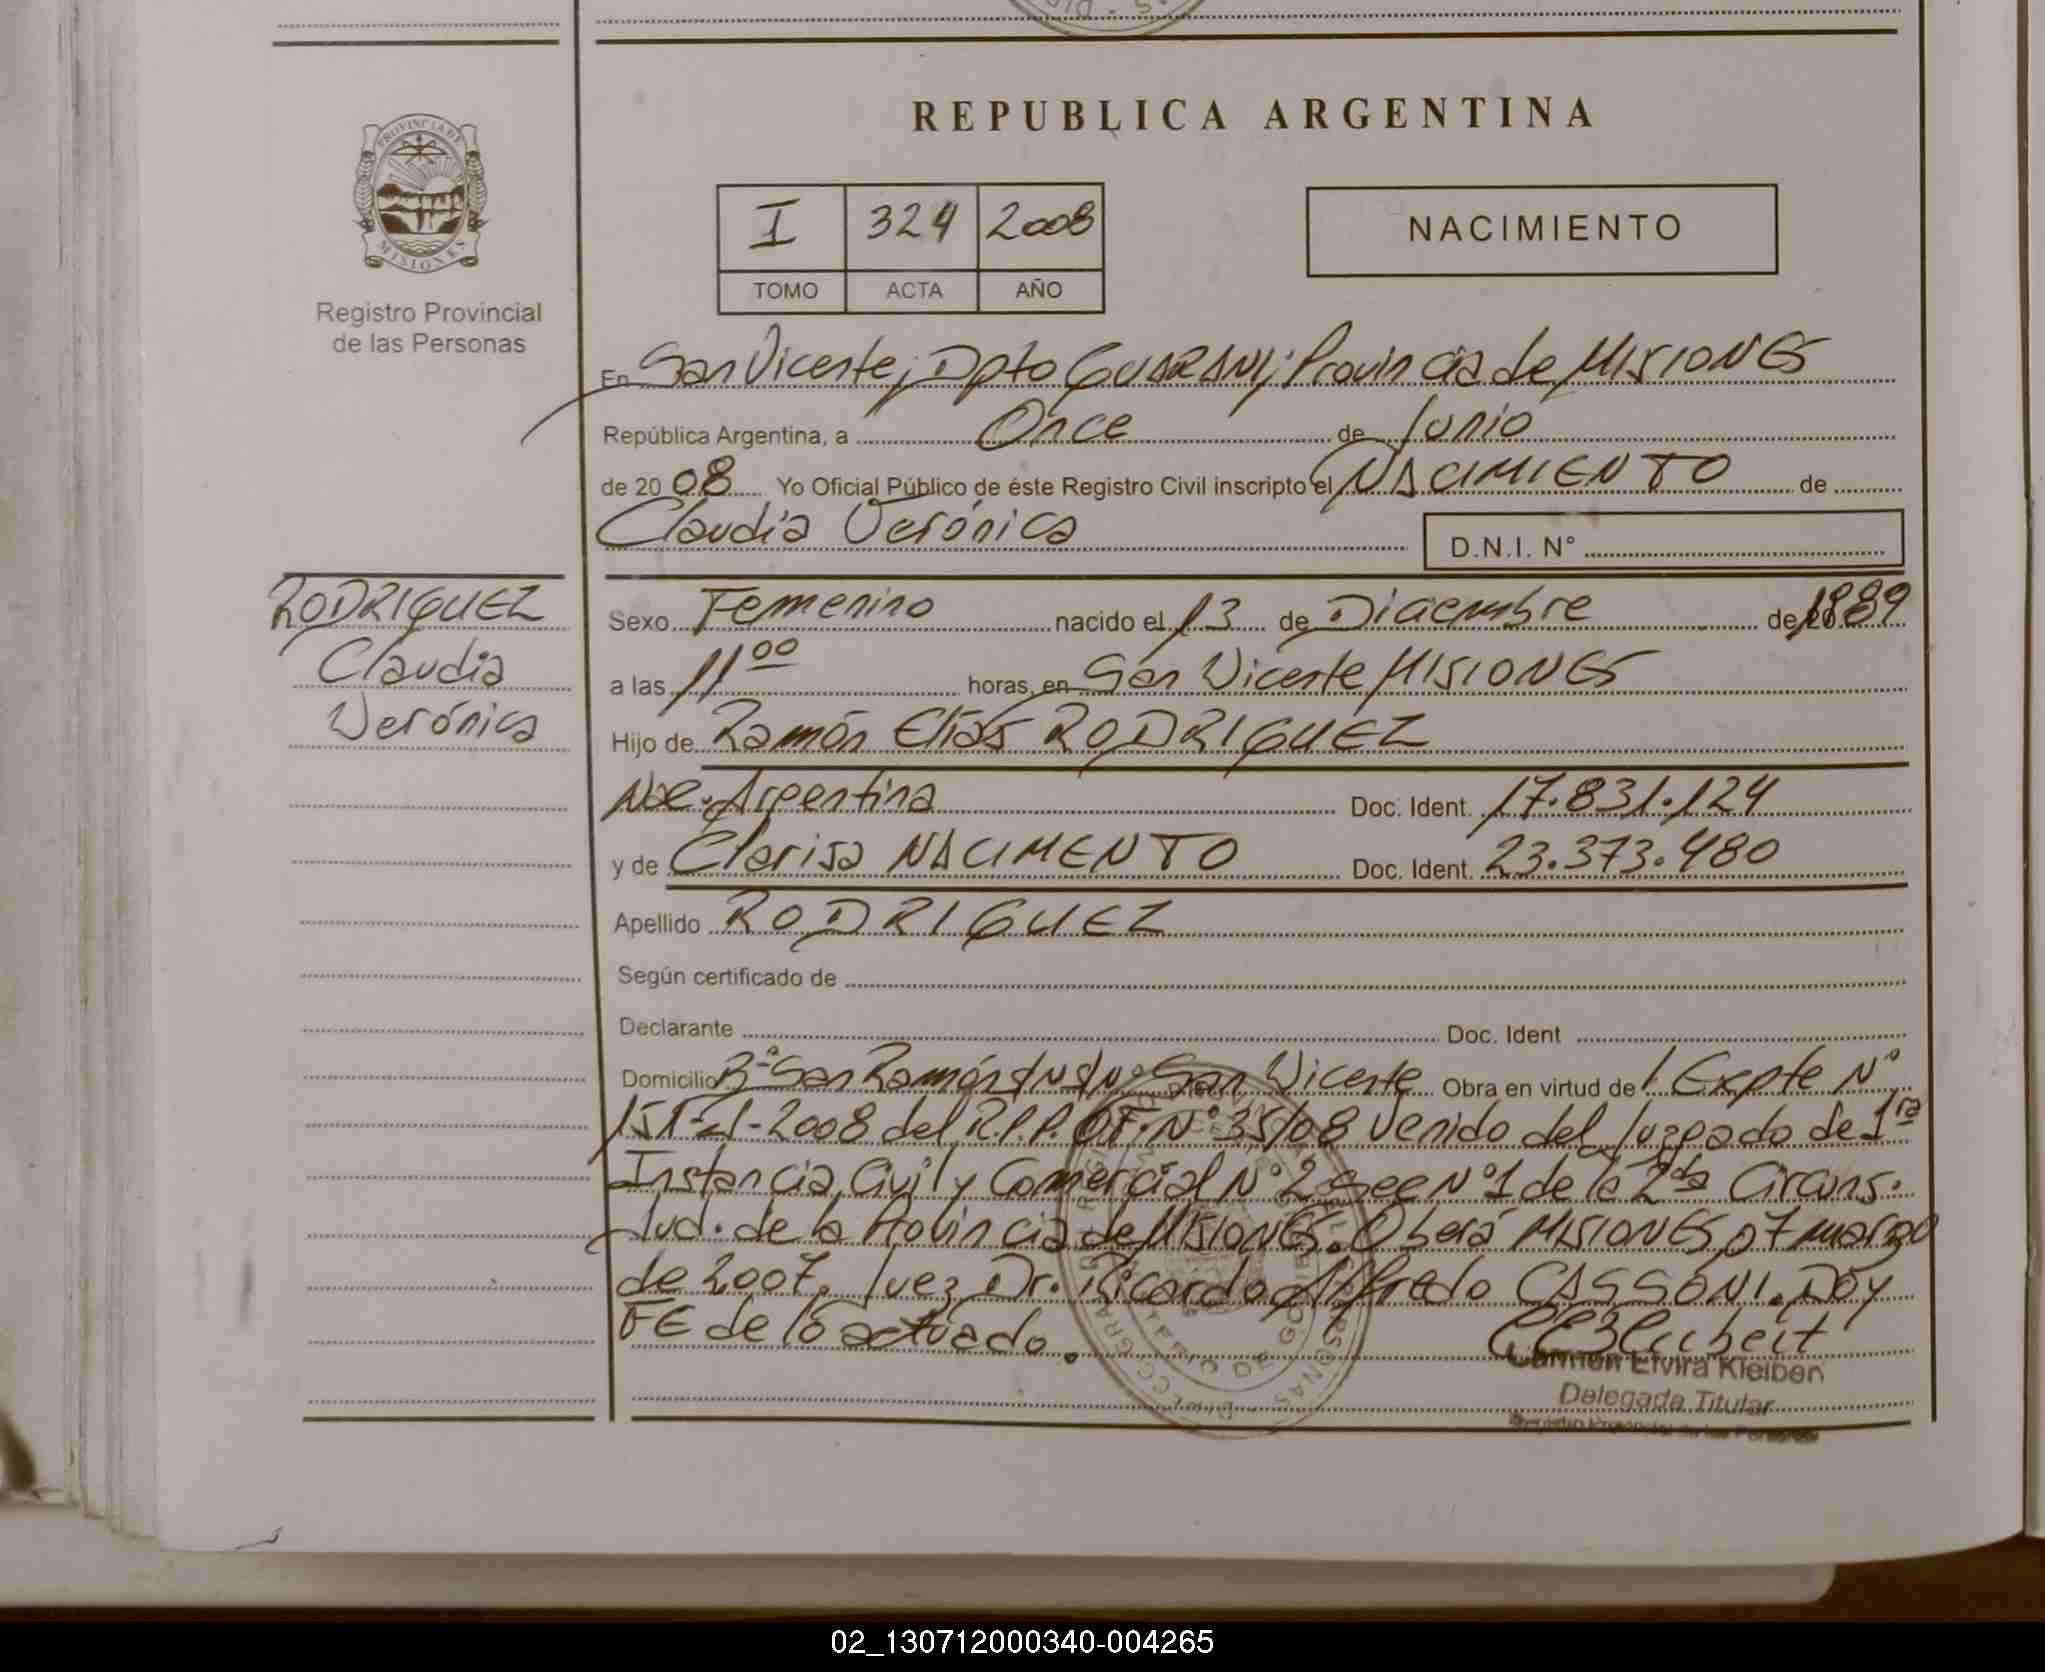 REPUBLICA ARGENTINA
PROVINCIA DE
MISIONES
Registro Provincial
de las Personas
I 324 2008
TOMO ACTA AÑO
NACIMIENTO
En San Vicente, Dpto GUARANI; Provincia de MISIONES
República Argentina, a Once de Junio
de 20 08 Yo Oficial Público de éste Registro Civil inscripto el NACIMIENTO de
Claudia Verónica
D.N.I. N°
RODRIGUEZ
Claudia
Verónica
Sexo Femenino nacido el 13 de Diciembre de 1989
a las 11 00 horas, en San Vicente MISIONES
Hijo de Ramón Elías RODRIGUEZ
Nac. Argentina Doc. Ident. 17.831.124
y de Clarisa NACIMENTO Doc. Ident. 23.373.480
Apellido RODRIGUEZ
Según certificado de
Declarante Doc. Ident
Domicilio B° San Ramón San Vicente Obra en virtud de Expte N°
2008 del R.P.P. OF. N° 35/08 Venido del Juzgado de 1ra
Instancia Civil y Comercial N° 2 Sec N° 1 de la 2da Circuns.
Jud. de la Provincia de MISIONES. Oberá MISIONES 07 marzo
de 2007. Juez Dr. Ricardo Alfredo CASSONI. DOY
FE de lo actuado.
Carmen Elvira Kleiben
Delegada Titular
Registro Provincial de las Personas
02_130712000340-004265